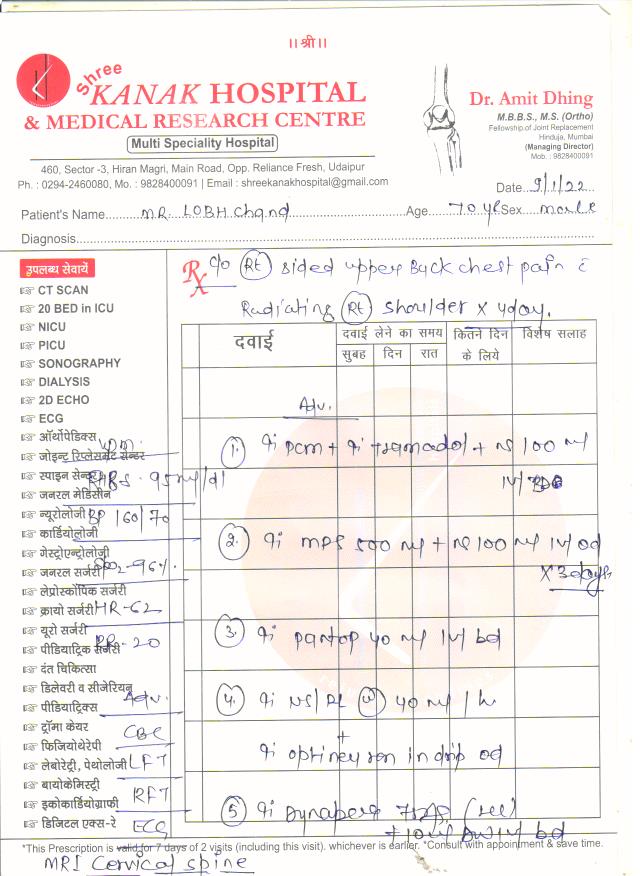 ॥श्री॥
Shree
KANAK HOSPITAL
& MEDICAL RESEARCH CENTRE
Multi Speciality Hospital
Dr. Amit Dhing
M.B.B.S., M.S. (Ortho)
Fellowship of Joint Replacement
Hinduja, Mumbai
(Managing Director)
Mob. : 9828400091
460, Sector -3, Hiran Magri, Main Road, Opp. Reliance Fresh, Udaipur
Ph. : 0294-2460080, Mo. : 9828400091 | Email : shreekanakhospital@gmail.com
Date 9/1/22
Patient's Name MR. LOBH Chand Age 70 ye Sex male
Diagnosis
Rx c/o Rt sided upper Back chest pain c
Radiating Rt shoulder x 4 day.
उपलब्ध सेवायें
CT SCAN
20 BED in ICU
NICU
PICU
SONOGRAPHY
DIALYSIS
2D ECHO
ECG
ऑर्थोपेडिक्स
जोइन्ट रिप्लेसमेंट सेन्टर
स्पाइन सेन्टर
RBS - 95 m/dl
जनरल मेडिसीन
न्यूरोलोजी BP 160/70
कार्डियोलोजी
गेस्ट्रोएन्ट्रोलोजी
जनरल सर्जरी SPO2 - 96%
लेप्रोस्कॉपिक सर्जरी
क्रायो सर्जरी HR - 62
यूरो सर्जरी
पीडियाट्रिक सर्जरी RR - 20
दंत चिकित्सा
डिलेवरी व सीजेरियन
पीडियाट्रिक्स Adv.
ट्रॉमा केयर
फिजियोथेरेपी CBC
लेबोरेट्री, पेथोलोजी LFT
बायोकेमिस्ट्री
इकोकार्डियोग्राफी RFT
डिजिटल एक्स-रे ECG
दवाई
दवाई लेने का समय
सुबह दिन रात
कितने दिन के लिये
विशेष सलाह
Adv.
1. Inj pcm + Inj tramadol + NS 100 ml
IV/
2. Inj MPS 500 mg + NS 100 ml IV od
x 3 days
3. Inj pantop 40 mg IV bd
4. Inj NS/RL 40 ml / hr
+
Inj optineuron in drip od
5. Inj Dynapar 75
+ 10 ml IV bd
*This Prescription is valid for 7 days of 2 visits (including this visit). whichever is earlier. *Consult with appointment & save time.
MRI Cervical spine